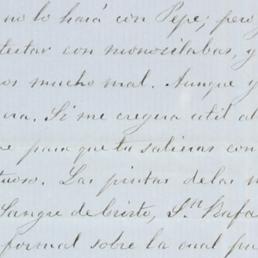 no lo hará con Pepe; pero
testar con monosilabas, y
os mucho mal. Aunque y
na. Si me creyera util al
e para que tu salieras con
tuoso. Las pintas de las
Sangre de Cristo, Sn. Rafa
formal sobre la cual pu